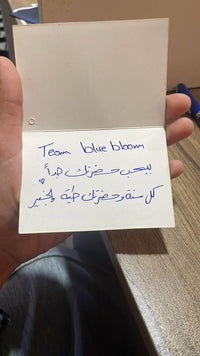 Team blue bloom
بيحب حضرتك جداً
كل سنة وحضرتك طيبة وبخير